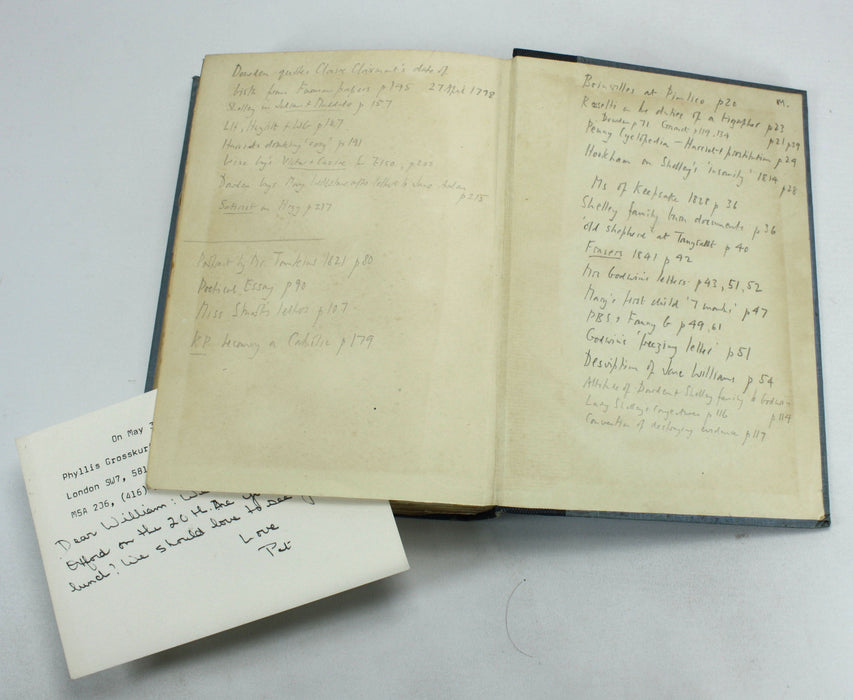 Dowden quotes Claire Clairmont's date of
birth from Forman papers p 195 27 April 1798
Shelley in Julian & Maddalo p 157
p 147
Harriet's drinking p 191
p 203
Dowden says Mary p 215
on Hogg p 237
Portrait by Mr. Tomkins 1821 p 80
Poetical Essay p 90
Miss letters p 107
becoming a Catholic p 179
M.
Boinvilles at Pimlico p 20
Rossetti on the duties of a biographer p 23
Dowden p 71 p 119, 134 p 21 p 39
Penny Cyclopedia – Harriet & prostitution p 24
Hookham on Shelley's 'insanity' 1814 p 28
Ms of Keepsake 1828 p 36
Shelley family burn documents p 36
'old shepherd' at Tanyrallt p 40
Frasers 1841 p 42
Mrs Godwin's letters p 43, 51, 52
Mary's first child '7 months' p 47
PBS & Fanny G p 49, 61
Godwin's 'freezing letter' p 51
Description of Jane Williams p 54
Attitude of Dowden & Shelley family to Godwin p 114
Lady Shelley's p 116
Convention of destroying evidence p 117
On May 3
Phyllis Grosskur
London SW7, 581
M5A 2J6, (416)
Dear William:
Oxford on the 20th. Are
lunch? We should love to see
Love
Pat